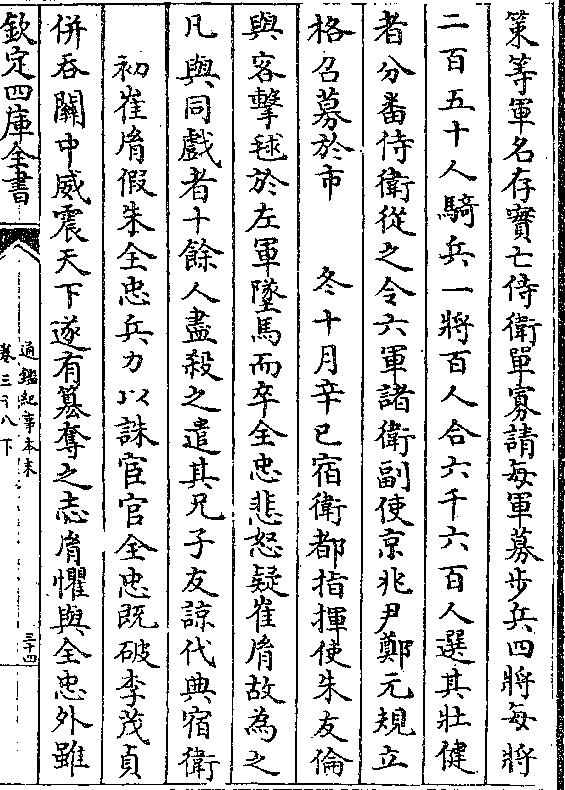 策等軍名存實亡侍衛單寡請每軍募步兵四將每將
二百五十人騎兵一將百人合六千六百人選其壯健
者分番侍衛從之令六軍諸衛副使京兆尹鄭元規立
格召募於市　　冬十月辛巳宿衛都指揮使朱友倫
與客擊毬於左軍墜馬而卒全忠悲怒疑崔𦙍故為之
凡與同戲者十餘人盡殺之遣其兄子友諒代典宿衛
初崔𦙍假朱全忠兵力以誅宦官全忠既破李茂貞
併吞關中威震天下遂有簒奪之志𦙍懼與全忠外雖
欽定四庫全書
通鑑紀事本末
卷三十八下
三十四